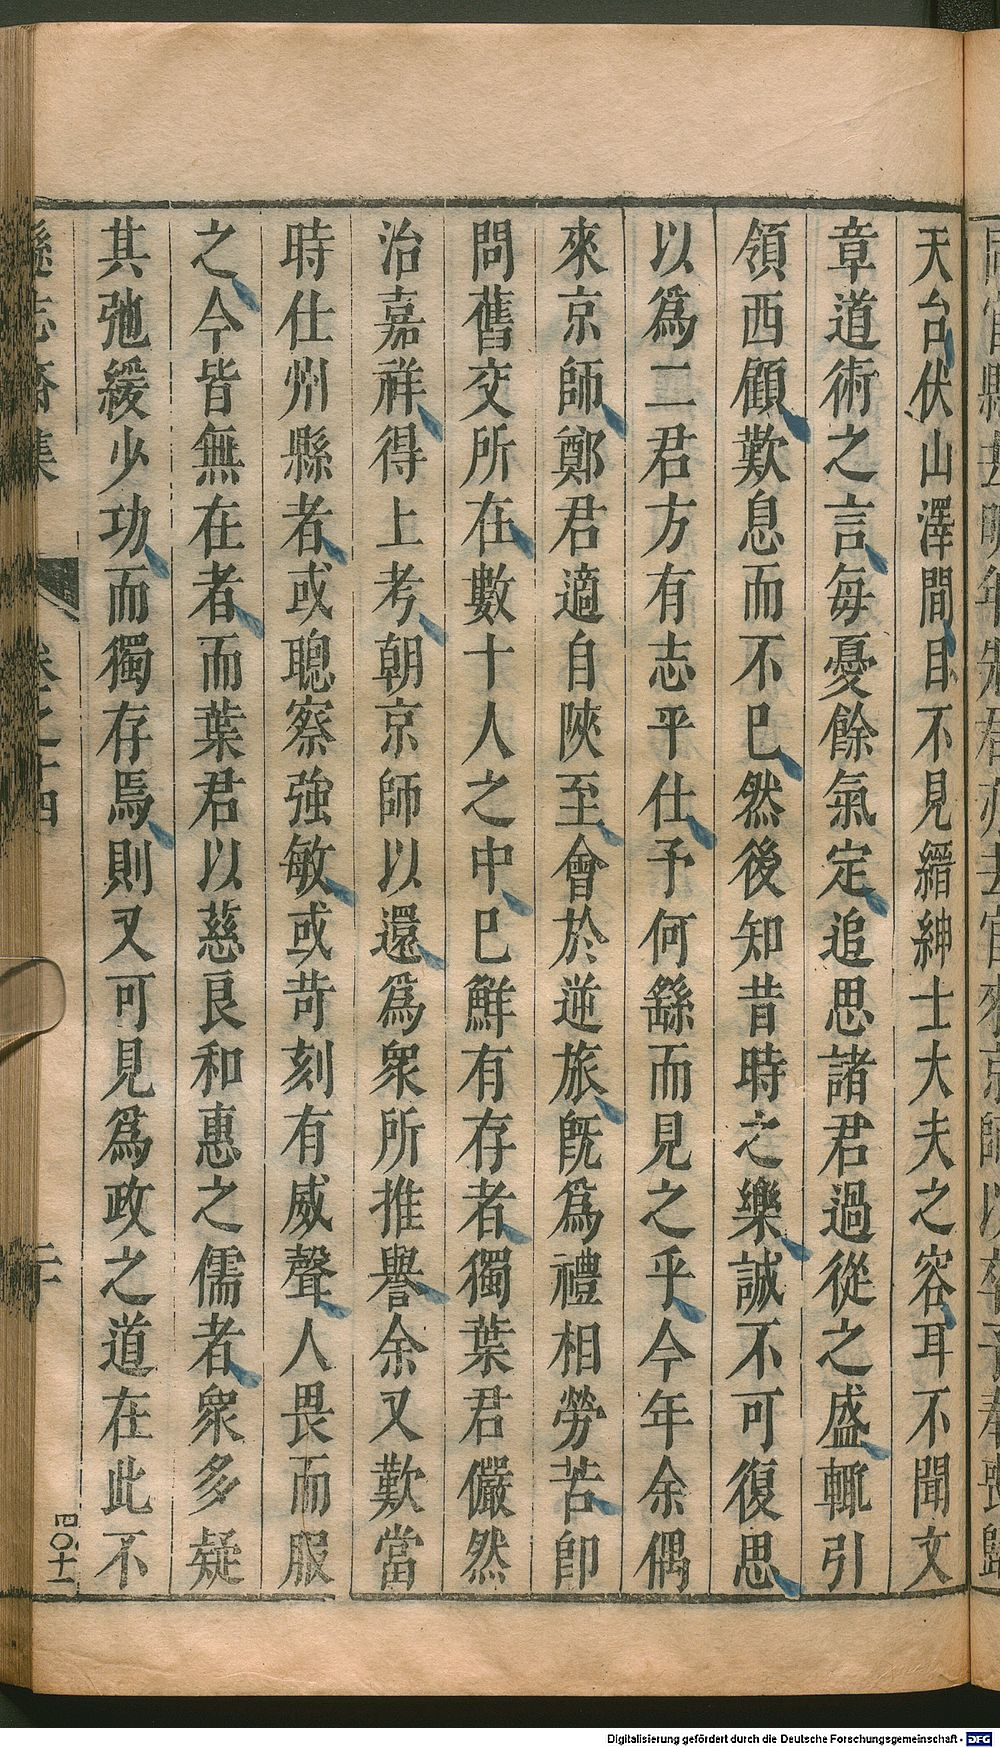 天台伏山澤間目不見縉紳士大夫之容耳不聞文
章道術之言每憂餘氣定追思諸君過從之盛輒引
領西顧歎息而不巳然後知昔時之樂誠不可復思
以爲二君方有志乎仕予何繇而見之乎今年余偶
來京師鄭君適自陝至會於逆旅旣爲禮相勞苦卽
問舊交所在數十人之中巳鮮有存者獨葉君儼然
治嘉祥得上考朝京師以還爲衆所推譽余又歎當
時仕州縣者或聰察強敏或苛刻有威聲人畏而服
之今皆無在者而葉君以慈良和惠之儒者衆多疑
其弛緩少功而獨存焉則又可見爲政之道在此不
遜志齋集
卷之十四
二十
四〇十一
Digitalisierung gefördert durch die Deutsche Forschungsgemeinschaft - DFG